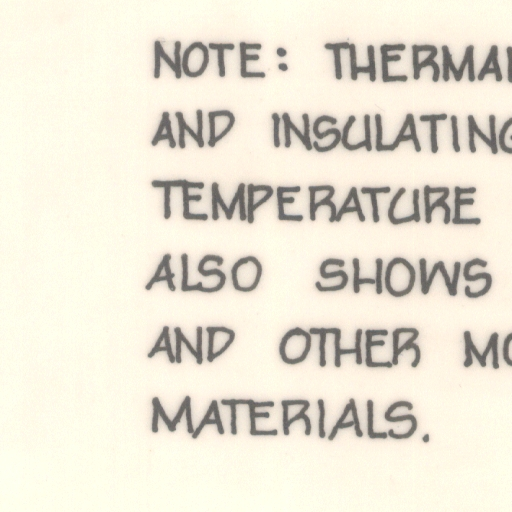 NOTE: THERMAL
AND INSULATING
TEMPERATURE
ALSO SHOWS
AND OTHER
MATERIALS.